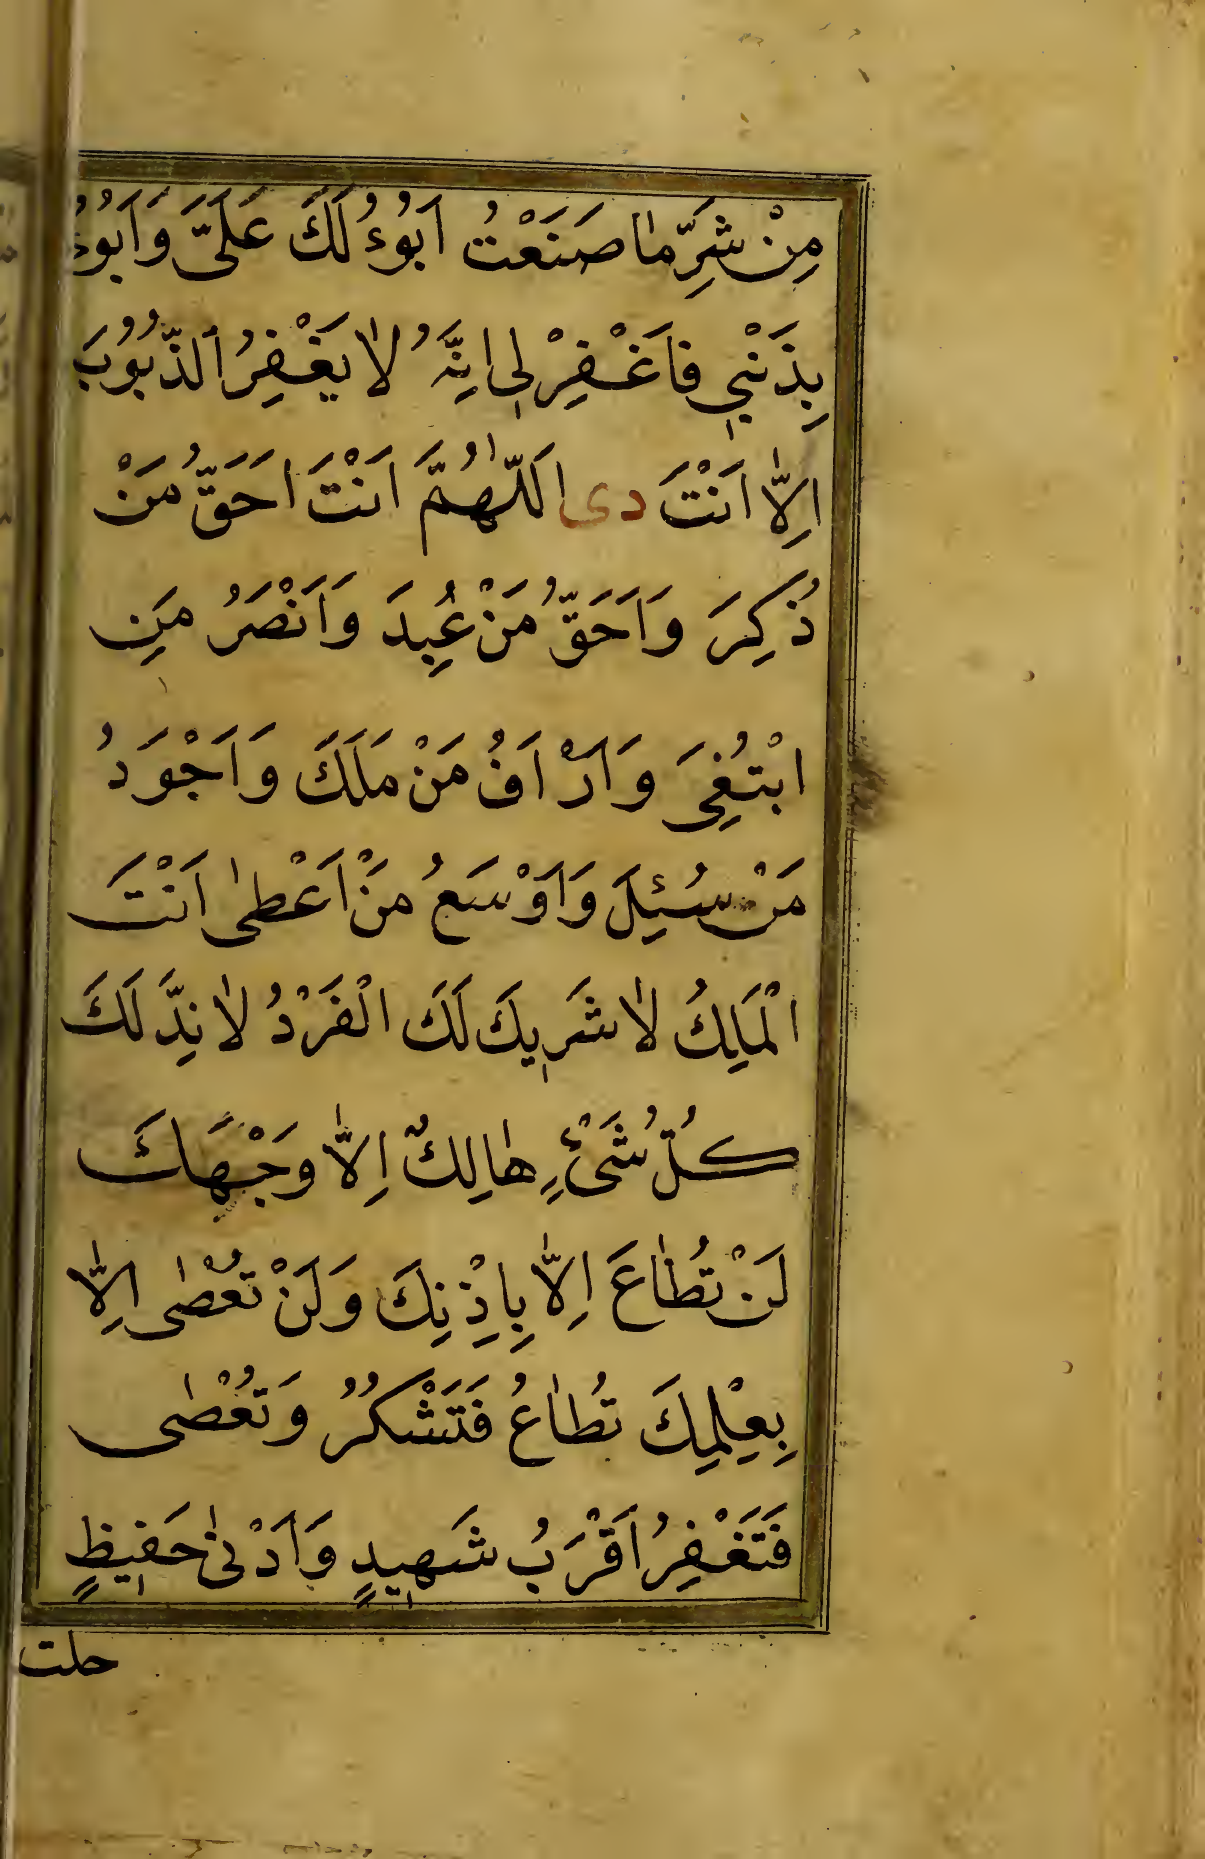 مِنْ شَرِّ مٰا صَنَعْتُ اَبُوءُ لَكَ عَلَيَّ وَاَبُوءُ
بِذَنْبٖي فَاغْفِرْ لٖي اِنَّهُ لاٰ يَغْفِرُ الذُّنُوُبَ
اِلاّٰ اَنْتَ دى اَللّٰهُمَّ اَنْتَ اَحَقُّ مَنْ
ذُكِرَ وَاَحَقُّ مَنْ عُبِدَ وَاَنْصَرُ مَنِ
ابْتُغِيَ وَاَرْاَفُ مَنْ مَلَكَ وَاَجْوَدُ
مَنْ سُئِلَ وَاَوْسَعُ مَنْ اَعْطىٰ اَنْتَ
الْمَلِكُ لاٰ شَرٖيكَ لَكَ الْفَرْدُ لاٰ نِدَّ لَكَ
كُلُّ شَيْءٍ هٰالِكٌ اِلاّٰ وَجْهَكَ
لَنْ تُطٰاعَ اِلاّٰ بِاِذْنِكَ وَلَنْ تُعْصٰى اِلاّٰ
بِعِلْمِكَ تُطٰاعُ فَتَشْكُرُ وَتُعْصٰى
فَتَغْفِرُ اَقْرَبُ شَهٖيدٍ وَاَدْنىٰ حَفٖيظٍ
حلت